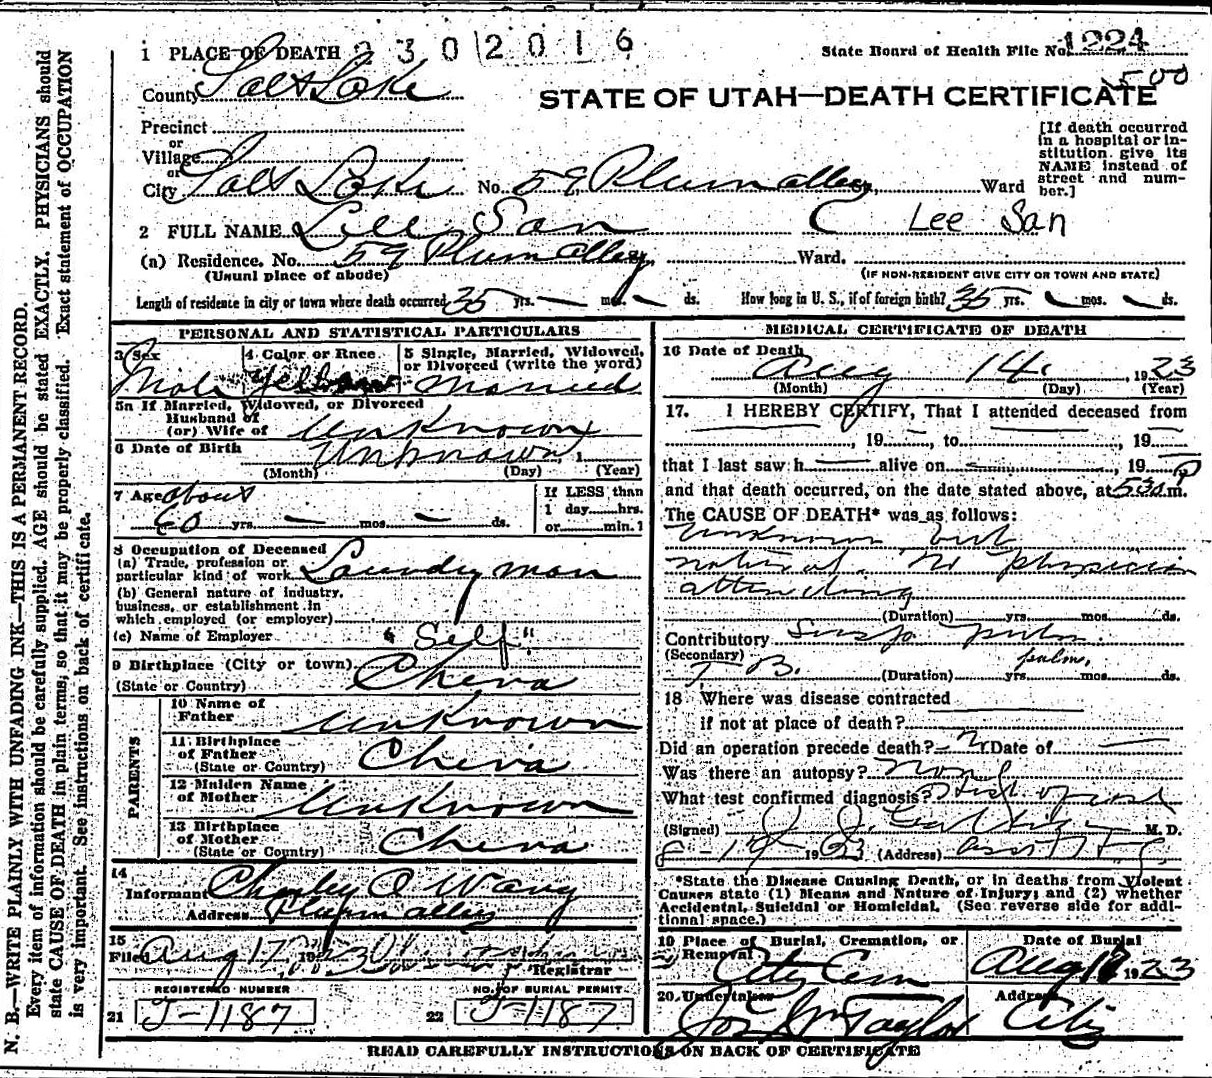 N. B.—WRITE PLAINLY WITH UNFADING INK—THIS IS A PERMANENT RECORD.
Every item of information should be carefully supplied. AGE should be stated EXACTLY. PHYSICIANS should
state CAUSE OF DEATH in plain terms, so that it may be properly classified. Exact statement of OCCUPATION
is very important. See instructions on back of certificate.
1 PLACE OF DEATH 2302016
State Board of Health File No. 1224
500
County Salt Lake
STATE OF UTAH—DEATH CERTIFICATE
Precinct
or
Village
or
City Salt Lake No. 59 Plum alley Ward
[If death occurred
in a hospital or in-
stitution give its
NAME instead of
street and num-
ber.]
2 FULL NAME Lee San C Lee San
(a) Residence. No. 59 Plum Alley Ward.
(Usual place of abode) (IF NON-RESIDENT GIVE CITY OR TOWN AND STATE)
Length of residence in city or town where death occurred 35 yrs. — mos. — ds. How long in U. S., if of foreign birth? 35 yrs. — mos. — ds.
PERSONAL AND STATISTICAL PARTICULARS
3 Sex 4 Color or Race 5 Single, Married, Widowed,
or Divorced (write the word)
Male Yellow Married
5a If Married, Widowed, or Divorced
Husband of
(or) Wife of Unknown
6 Date of Birth Unknown, 1
(Month) (Day) (Year)
7 Age about
60 yrs. — mos. — ds.
If LESS than
1 day hrs.
or min.
8 Occupation of Deceased
(a) Trade, profession or
particular kind of work Laundry man
(b) General nature of industry,
business, or establishment in
which employed (or employer)
(c) Name of Employer "Self"
9 Birthplace (City or town)
(State or Country) China
PARENTS
10 Name of
Father Unknown
11 Birthplace
of Father
(State or Country) China
12 Maiden Name
of Mother Unknown
13 Birthplace
of Mother
(State or Country) China
14
Informant Charley Q Wang
Address Plum alley
15
Filed Aug 17 1923
Registrar
REGISTERED NUMBER NO. OF BURIAL PERMIT
21 J-1187 22 J-1187
MEDICAL CERTIFICATE OF DEATH
16 Date of Death
Aug 14, 1923
(Month) (Day) (Year)
17. I HEREBY CERTIFY, That I attended deceased from
, 19 —, to , 19 —
that I last saw h — alive on — , 19 —
and that death occurred, on the date stated above, at 530 P m.
The CAUSE OF DEATH* was as follows:
unknown but
natural. No physician
attending
(Duration) yrs. mos. ds.
Contributory pulm.
(Secondary) T. B. pulm.
(Duration) yrs. mos. ds.
18 Where was disease contracted
if not at place of death?
Did an operation precede death? N Date of —
Was there an autopsy? none
What test confirmed diagnosis?
(Signed) M. D.
1923 (Address)
*State the Disease Causing Death, or in deaths from Violent
Causes state (1) Means and Nature of Injury; and (2) whether
Accidental, Suicidal or Homicidal. (See reverse side for addi-
tional space.)
19 Place of Burial, Cremation, or
Removal City Cem
Date of Burial
Aug 17 1923
20 Undertaker Jos Wm Taylor
Address City
READ CAREFULLY INSTRUCTIONS ON BACK OF CERTIFICATE